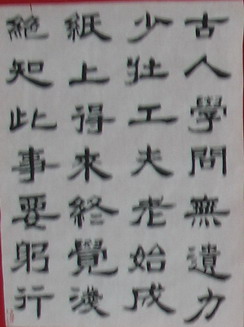 古人學問無遺力
少壯工夫老始成
紙上得來終覺淺
絕知此事要躬行